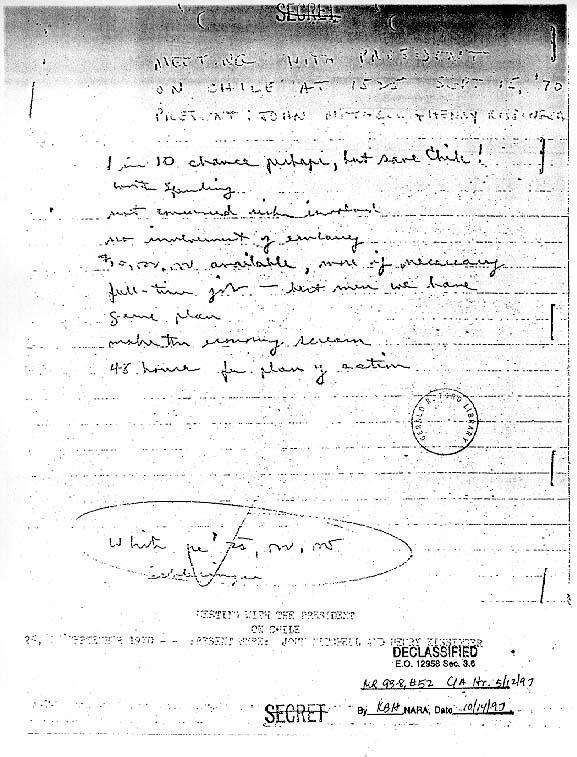 SECRET
MEETING WITH PRESIDENT
ON CHILE AT 1525 SEPT 15, '70
PRESENT: JOHN MITCHELL & HENRY KISSINGER
1 in 10 chance perhaps, but save Chile!
worth spending
not concerned risks involved
no involvement of embassy
$10,000,000 available, more if necessary
full-time job — best men we have
game plan
make the economy scream
48 hours for plan of action
GERALD R. FORD LIBRARY
MEETING WITH THE PRESIDENT
ON CHILE
SEPTEMBER 1970 -- PRESENT WERE: JOHN MITCHELL AND HENRY KISSINGER
DECLASSIFIED
E.O. 12958 Sec. 3.6
MR 93-8, #52 CIA ltr. 5/12/97
By KBH NARA, Date 10/14/97
SECRET